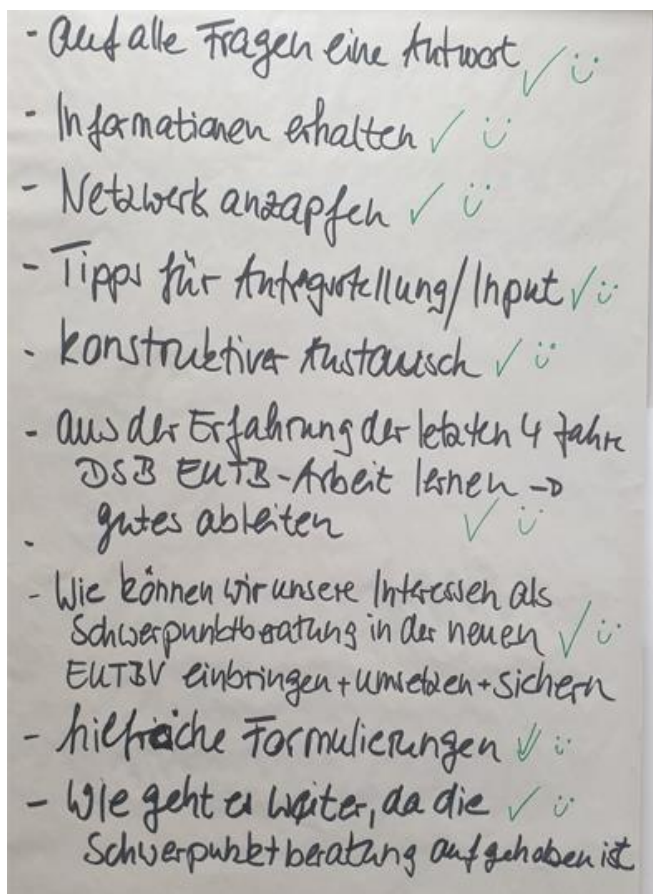 - Auf alle Fragen eine Antwort ✓ ü
- Informationen erhalten ✓ ü
- Netzwerk anzapfen ✓ ü
- Tipps für Antragstellung/Input ✓ ü
- konstruktiver Austausch ✓ ü
- aus der Erfahrung der letzten 4 Jahre
DSB EUTB-Arbeit lernen →
gutes ableiten ✓ ü
- Wie können wir unsere Interessen als
Schwerpunktberatung in der neuen ✓ ü
EUTBV einbringen + umsetzen + sichern
- hilfreiche Formulierungen ✓ ü
- Wie geht es weiter, da die ✓ ü
Schwerpunktberatung aufgehoben ist